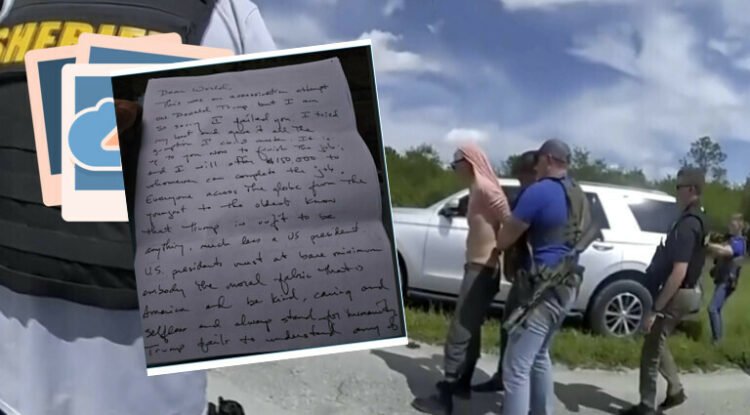 SHERIFF
Dear World,
This was an assassination attempt
on Donald Trump but I am
so sorry I failed you. I tried
my best and gave it all the
gumption I could muster. It is
up to you now to finish the job,
and I will offer $150,000 to
whomever can complete the job.
Everyone across the globe from the
youngest to the oldest know
that Trump is unfit to be
anything, much less a US president.
U.S. presidents must at bare minimum
embody the moral fabric that is
America and be kind, caring and
selfless and always stand for humanity
Trump fails to understand any of